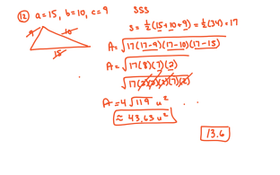 12) a=15, b=10, c=9 SSS
s = ½(15+10+9) = ½(34) = 17
9 10
15
A = √17(17-9)(17-10)(17-15)
A = √17(8)(7)(2)
√17(2)(2)(2)(7)(2)
A = 4√119 u²
≈ 43.63 u²
13.6